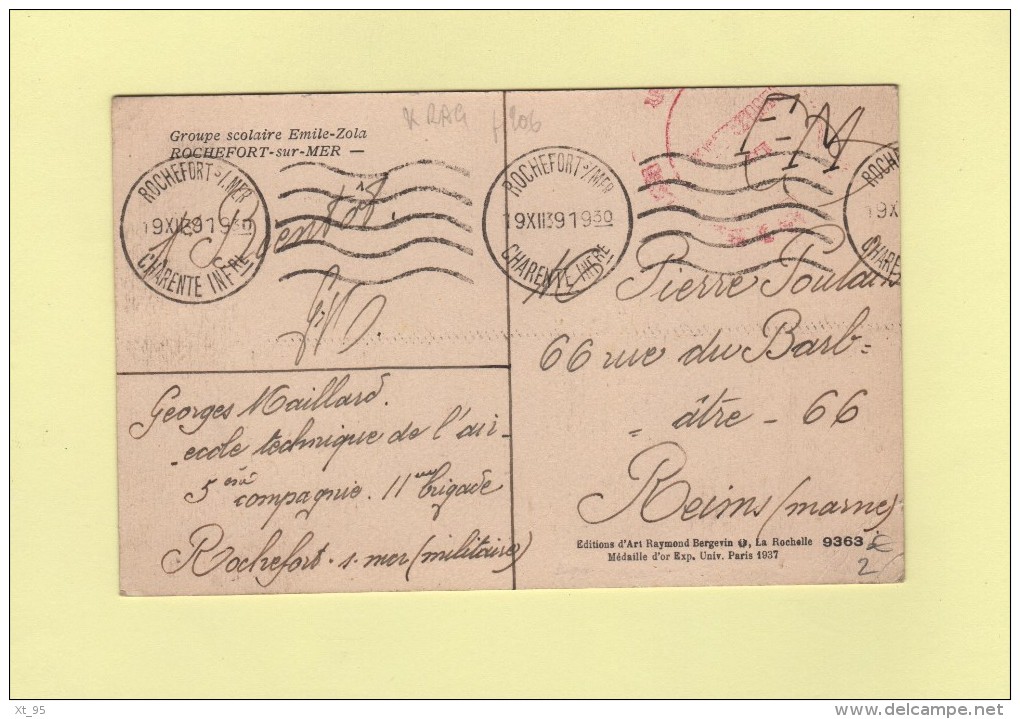 KRAG f 206
Groupe scolaire Emile-Zola
ROCHEFORT-sur-MER —
ROCHEFORT S/MER
19XII39 1930
CHARENTE INFRE
ROCHEFORT S/MER
19XII39 1930
CHARENTE INFRE
ROCHEFORT
19X
CHARENTE
FM
à bientôt.
GM
Georges Maillard.
- ecole technique de l'air -
5ème compagnie. 11me brigade
Rochefort. s. mer (militaire)
M Pierre Poulain
66 rue du Barb=
= âtre - 66
Reims (marne)
Editions d'Art Raymond Bergevin, La Rochelle 9363
Médaille d'or Exp. Univ. Paris 1937
2
Xt_95
www.delcampe.net